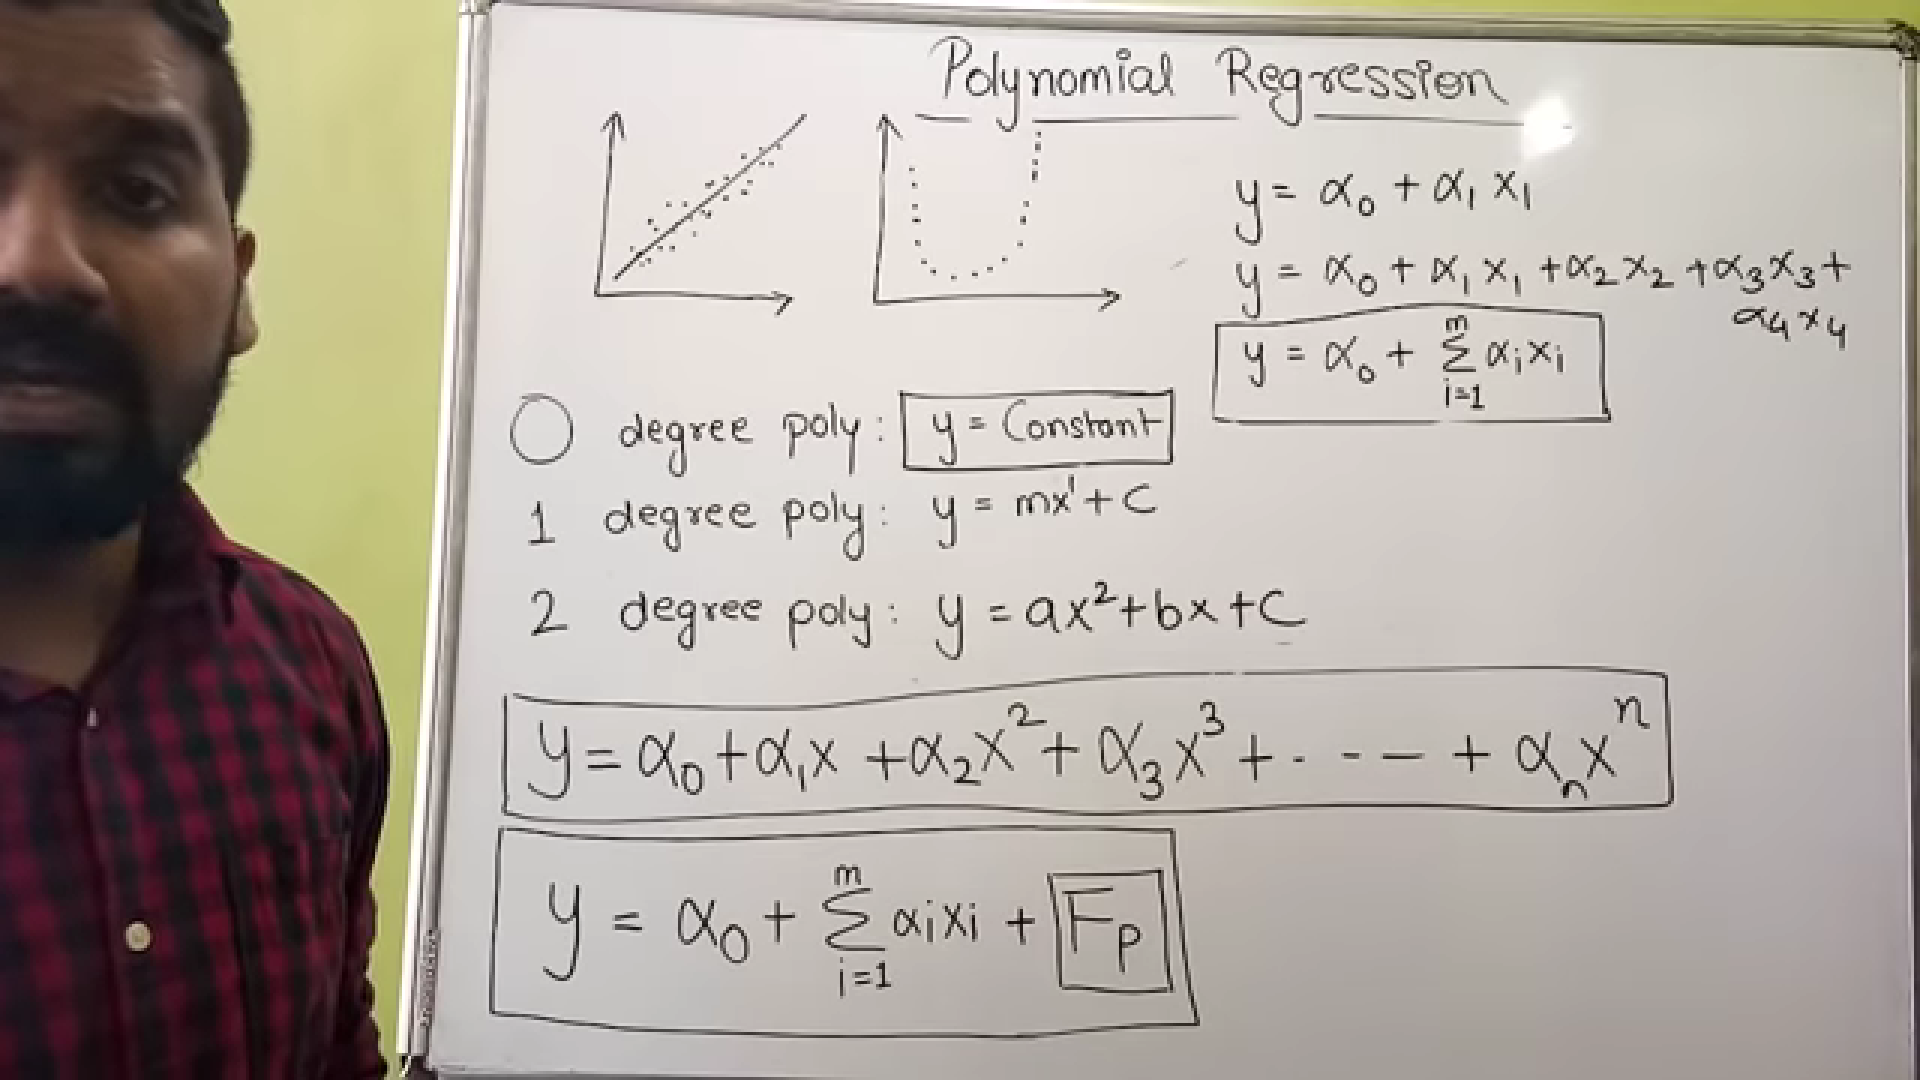 Polynomial Regression
y = α₀ + α₁ x₁
y = α₀ + α₁ x₁ + α₂ x₂ + α₃ x₃ +
α₄ x₄
y = α₀ + Σᵢ₌₁ᵐ αᵢ xᵢ
0 degree poly: y = Constant
1 degree poly: y = mx¹ + c
2 degree poly: y = ax² + bx + c
y = α₀ + α₁x + α₂x² + α₃x³ + - - - - + αₙxⁿ
y = α₀ + Σᵢ₌₁ᵐ αᵢxᵢ + Fₚ